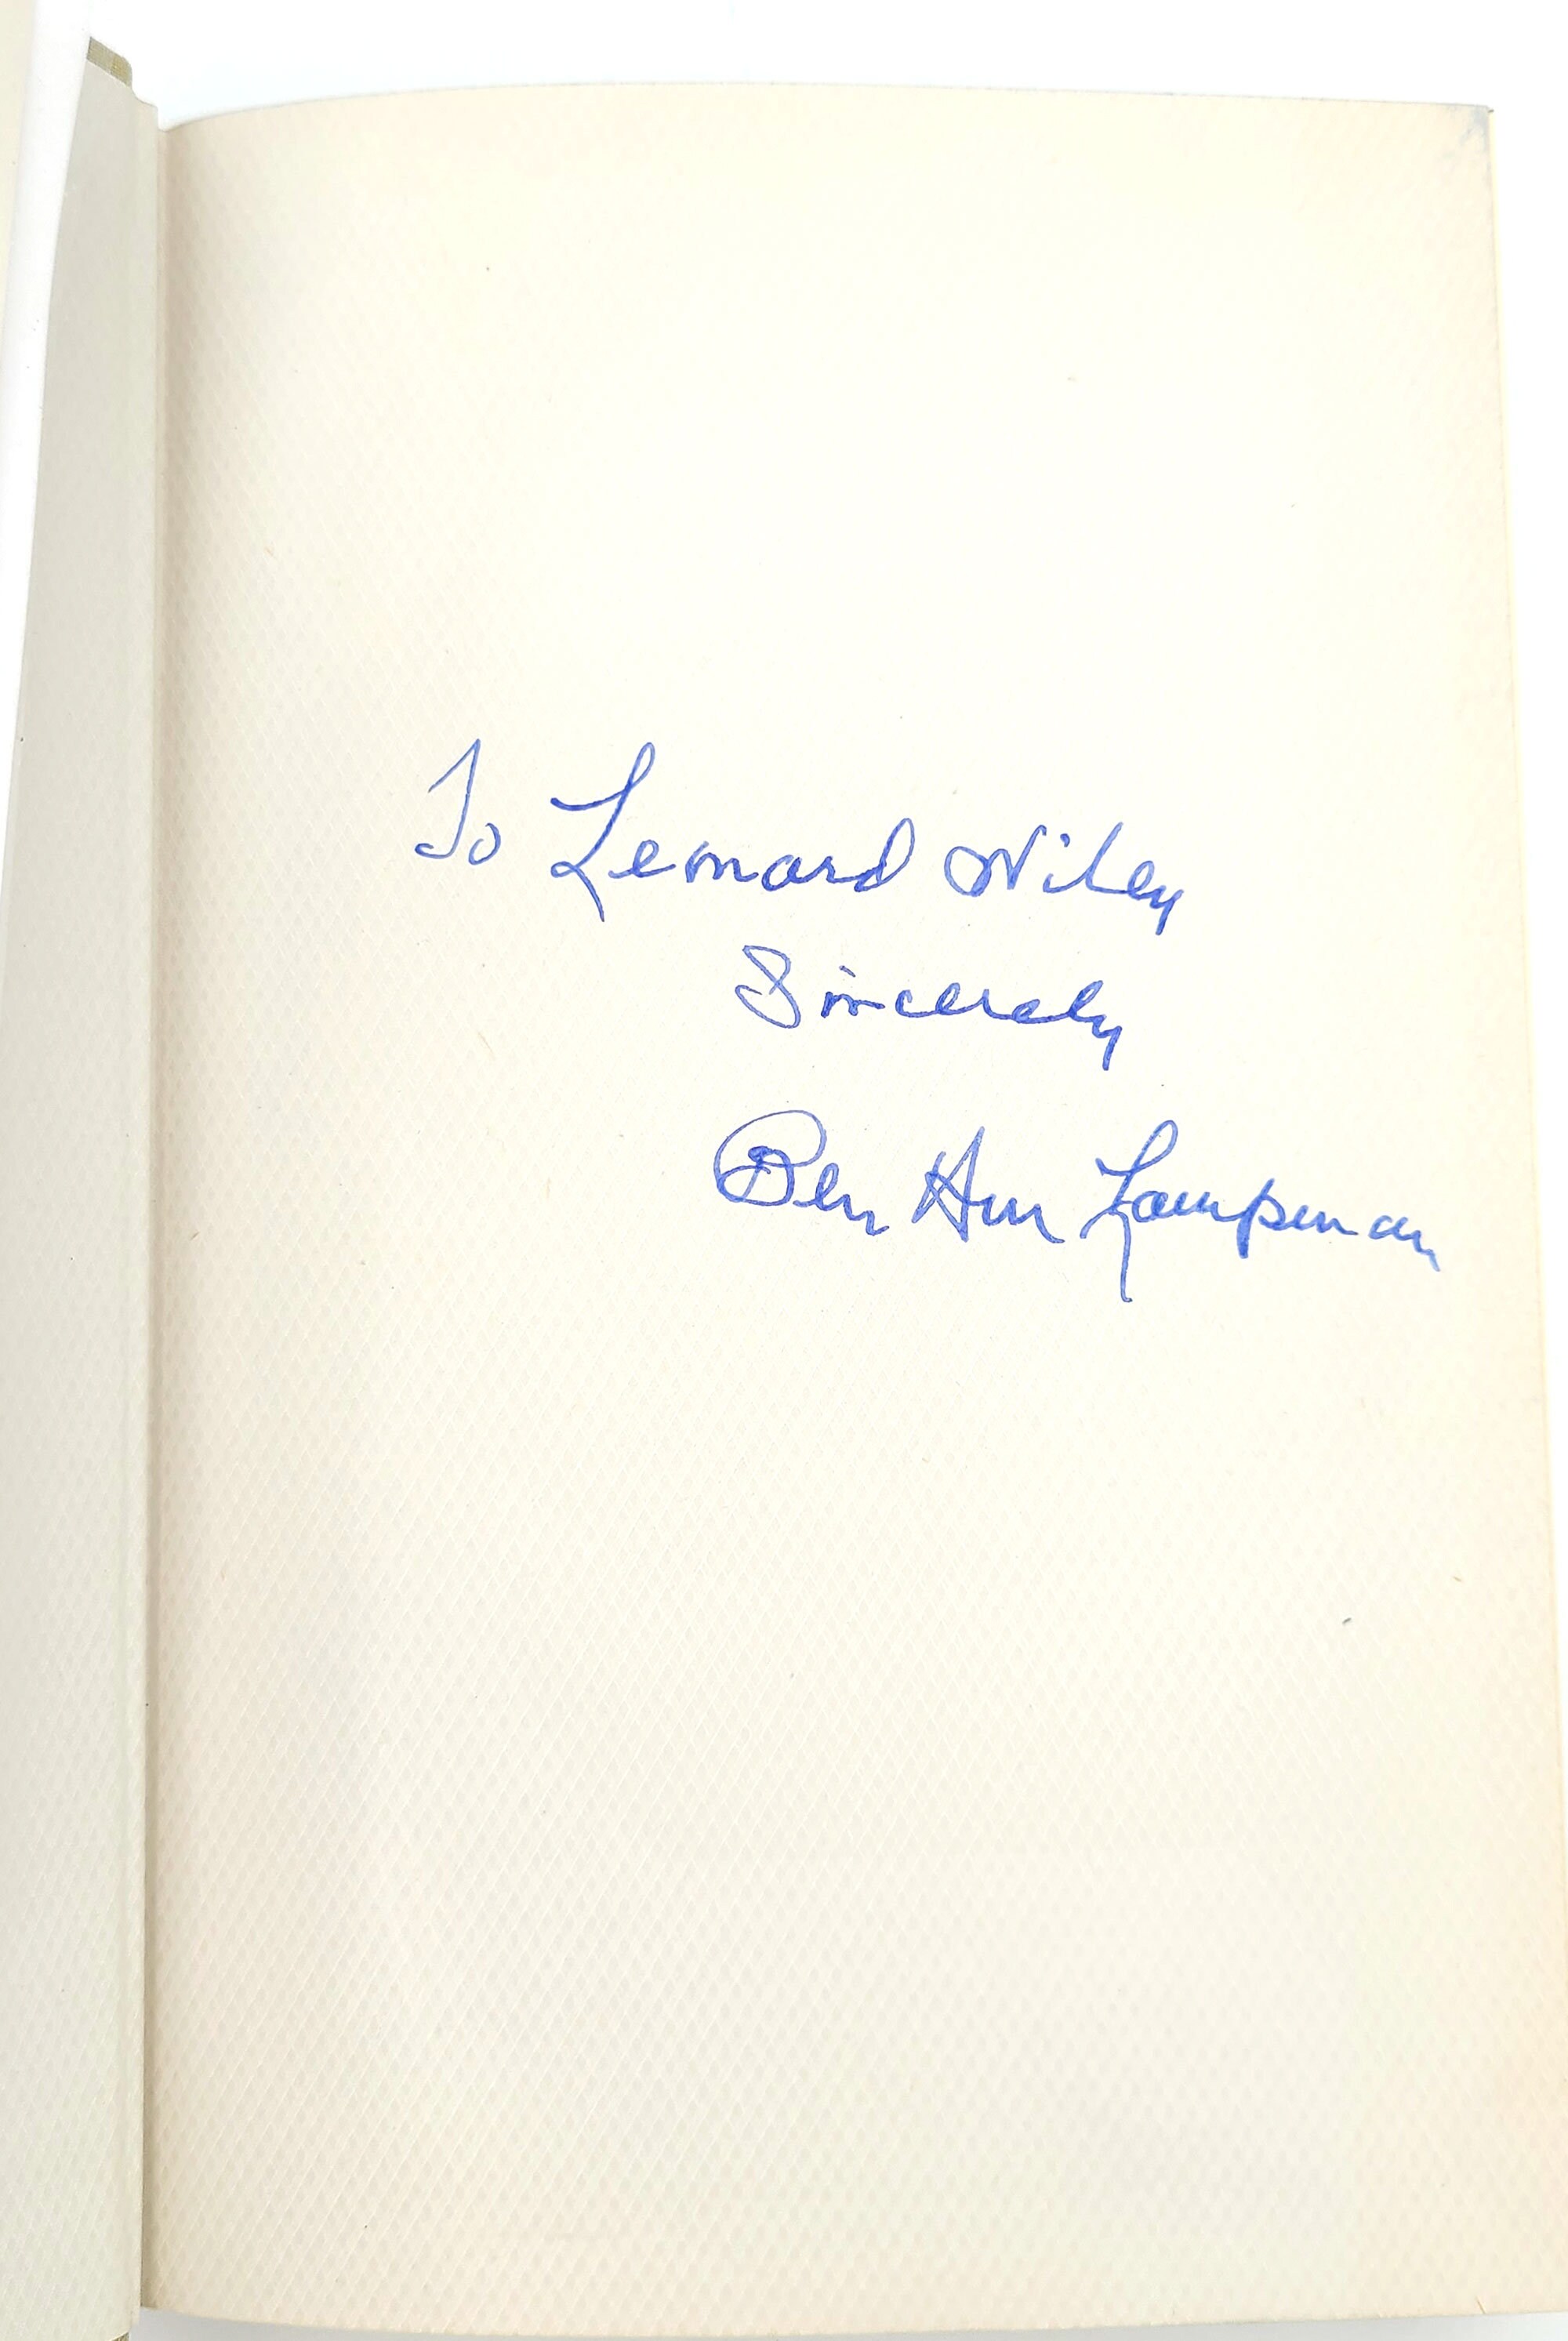 To Leonard Wiley
Sincerely
Ben Hur Lampman